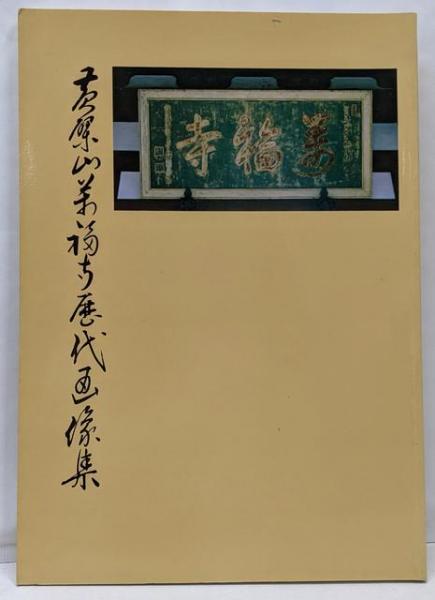 黄檗山萬福寺歴代画像集
萬福寺